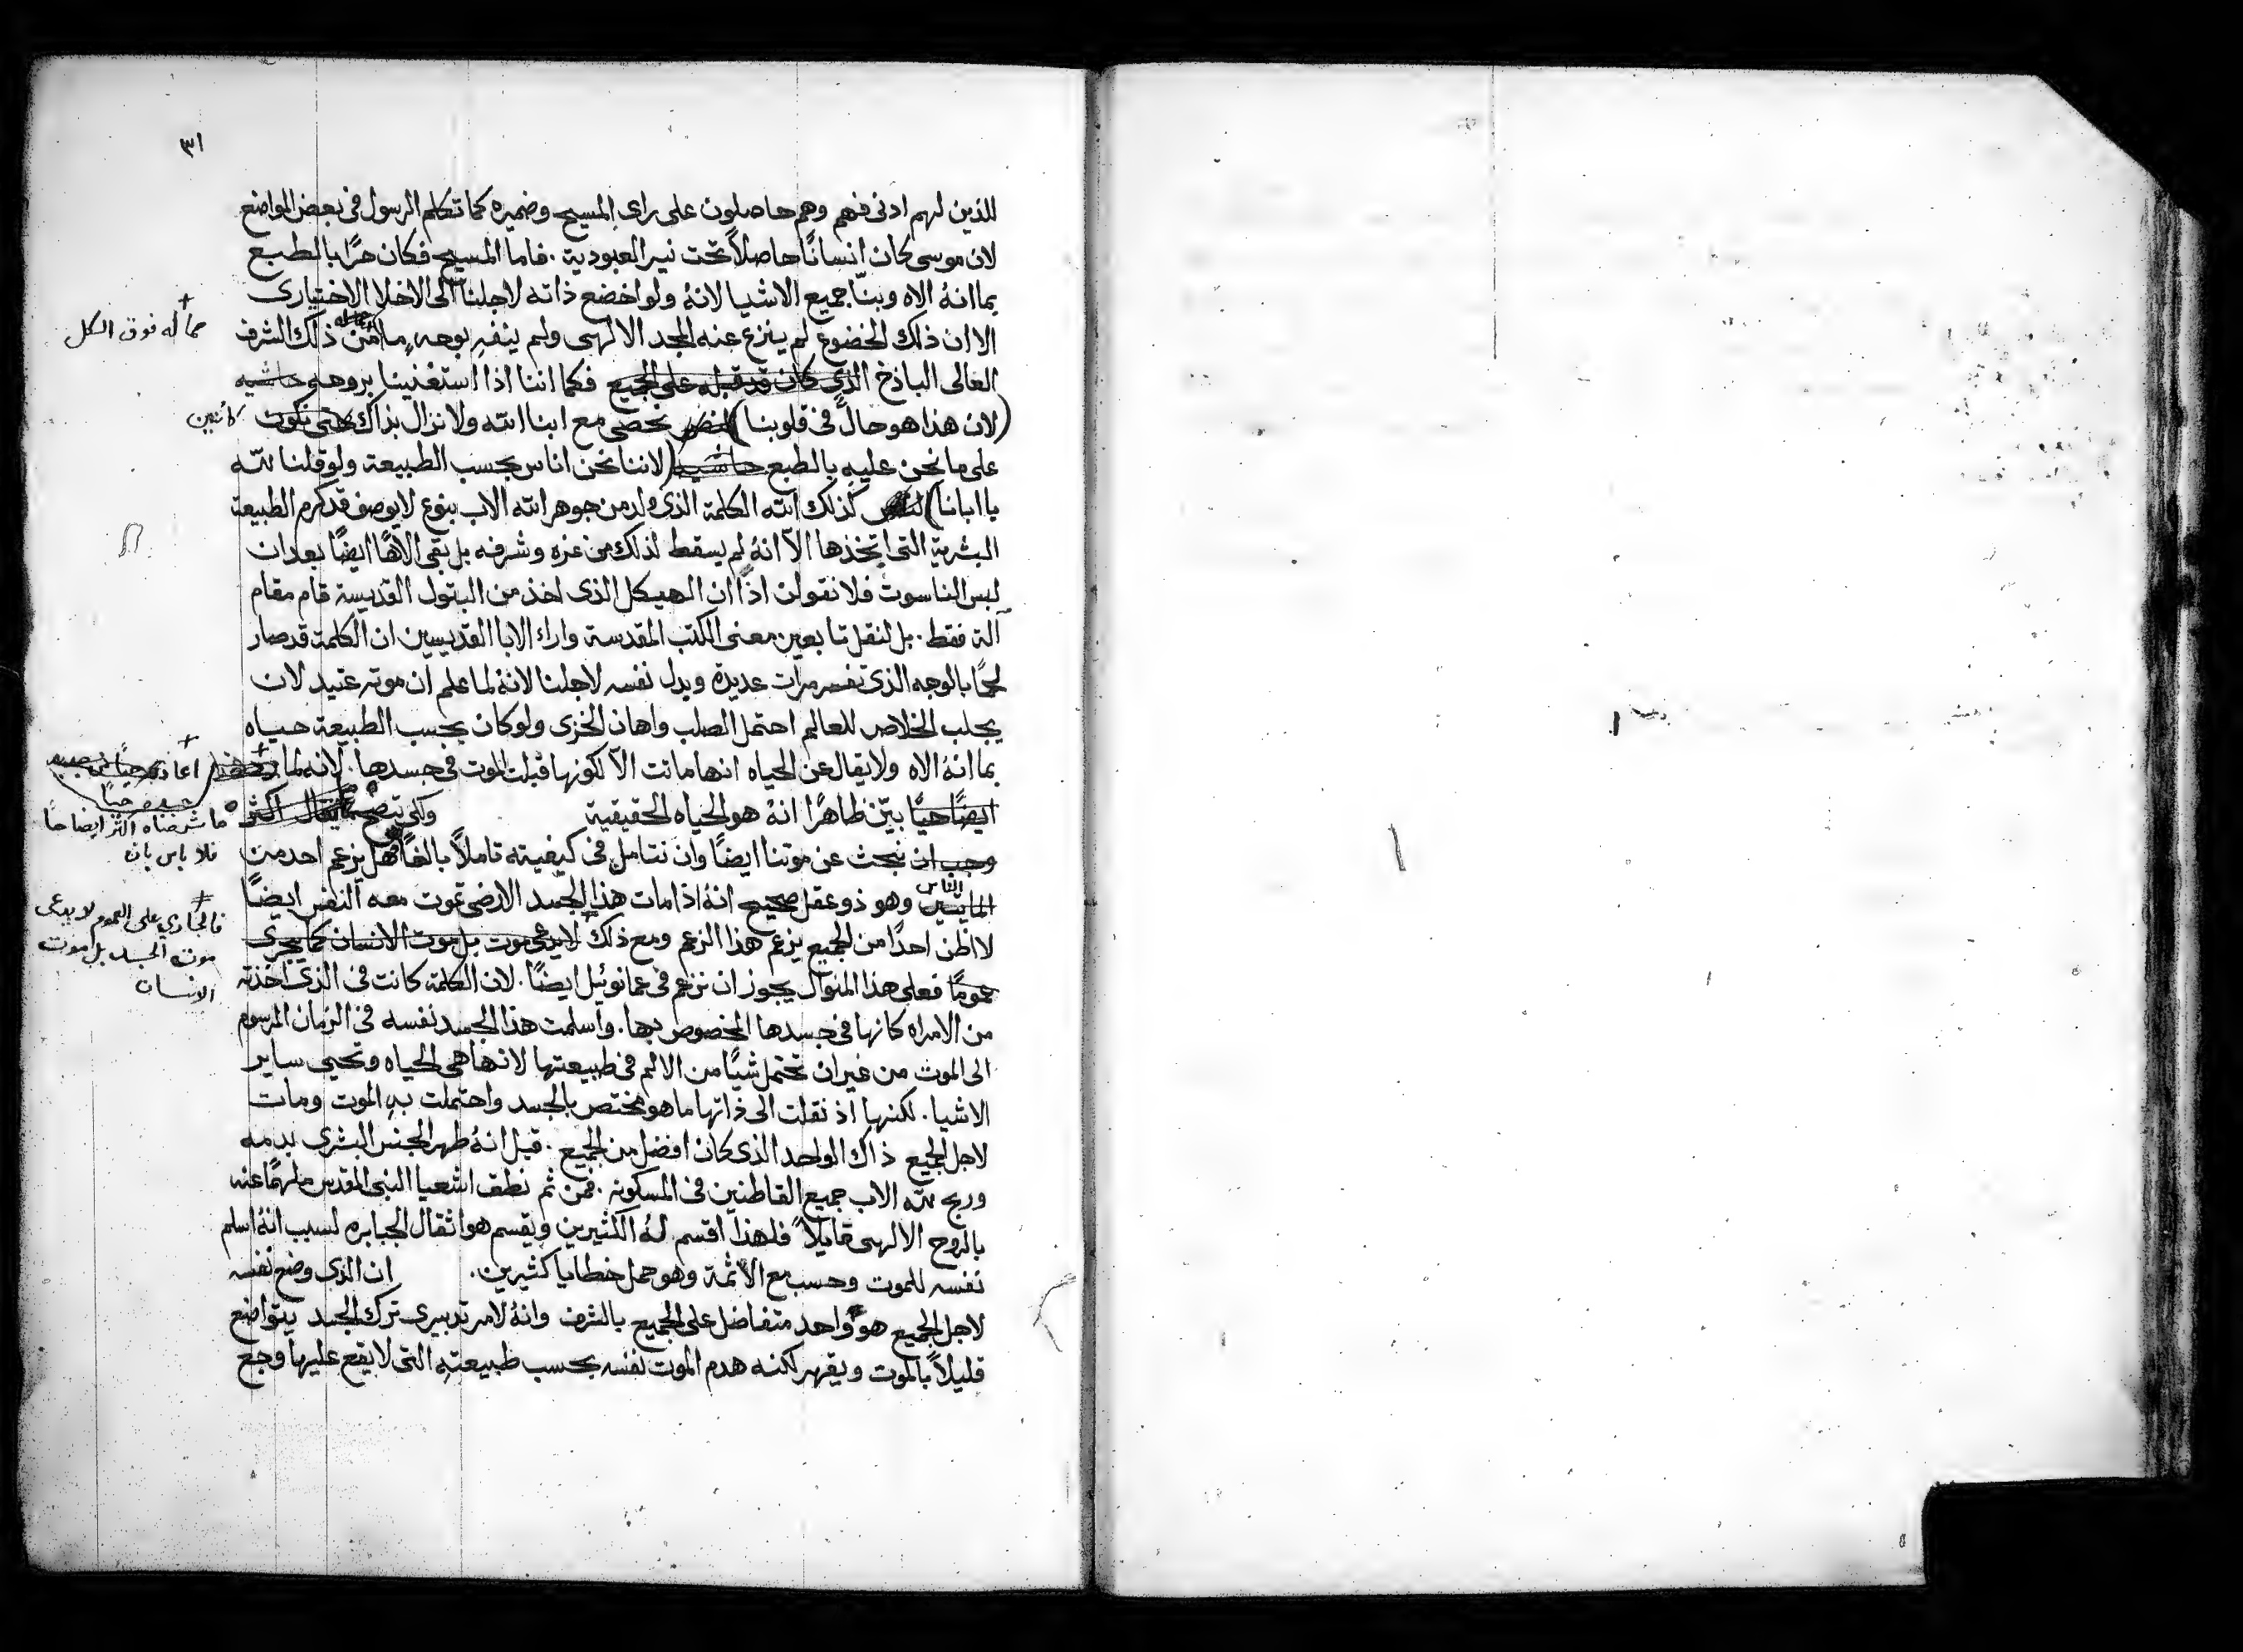 ٣١
للذين لهم ادنى فهم وهم حاصلون على راى المسيح وضميره كما تكلم الرسول فى بعض المواضع
لان موسى كان انسانًا حاصلاً تحت نير العبودية . فاما المسيح فكان حرًا بالطبع
بما انهُ الاه وبنّا جميع الاشيا لانهُ ولو اخضع ذاته لاجلنا الى الاخلا الاختيارى
الا ان ذلك الخضوع لم ينزع عنه المجد الالهى ولم ينفهِ بوجهٍ ما من ذلك الشرف
مما له فوق الكل
العالى الباذخ الذى كان قد قبله على الجميع فكما اننا اذا استغنينا بروحه حاشيه
(لان هذا هو حالً فى قلوبنا) نحصى مع ابنا الله ولا نزال بذاك حتى نكون كائنين
على ما نحن عليهِ بالطبع حاشيه (لاننا نحن اناس بحسب الطبيعة ولو قلنا لله
يا ابانا) كذلك الله الكلمة الذى ولد من جوهر الله الاب بنوع لا يوصف قد كرم الطبيعة
البشرية التى اتخذها الا انهُ لم يسقط لذلك من عزه وشرفه بل بقى الاهًا ايضًا بعد ان
لبس الناسوت فلا نقولن اذًا ان الهيكل الذى اخذ من البتول القديسة قام مقام
آلة فقط . بل لنقل تابعين معنى الكتب المقدسة واراء الابا القديسين ان الكلمة قد صار
لحمًا بالوجه الذى تفسر مرات عديدة وبدل نفسه لاجلنا لانهُ لما علم ان موته عتيد لان
يجلب الخلاص للعالم احتمل الصلب واهان الخزى ولو كان بحسب الطبيعة حياه
بما انهُ الاه ولا يقال عن الحياه انها ماتت الا لكونها قبلت الموت فى جسدها . لانه لما
ايضًا حيًا بيّن ظاهرًا انهُ هو الحياه الحقيقية ولكى تتضح
ما شرحناه اكثر ايضاحًا
فلا باس بان
وجب ان نبحث عن موتنا ايضًا وان نتامل فى كيفيته تاملاً بالغًا هل يزعم احد من
المايتين الناس وهو ذو عقل صحيح انهُ اذا مات هذا الجسد الارضى تموت معه النفس ايضًا
لا اظن احدًا من الجميع يزعم هذا الزعم ومع ذلك لا يدعى موت بل موت الانسان كما يجرى
فالجارى على العموم لا يدعى
موت الجسد بل موت
الانسان
عمومًا فعلى هذا المنوال يجوز ان نزعم فى عمانوئيل ايضًا . لان الكلمة كانت فى الذى اخذته
من الامراه كانها فى جسدها المخصوص بها . واسلمت هذا الجسد نفسه فى الزمان المرسوم
الى الموت من غير ان تحتمل شيًا من الالم فى طبيعتها لانها هى الحياه وتحيى ساير
الاشيا . لكنها اذ نقلت الى ذاتها ما هو مختص بالجسد واحتملت به الموت ومات
لاجل الجميع ذاك الواحد الذى كان افضل من الجميع . قبل انهُ طهر الجنس البشرى بدمه
وربح لله الاب جميع القاطنين فى المسكونه . فمن ثم نطق اشعيا النبى المقدس ملهمًا عنه
بالروح الالهى قايلاً فلهذا اقسم لهُ الكثيرين ويقسم هو اثقال الجبابره لسبب انهُ اسلم
نفسه للموت وحسب مع الاثمة وهو حمل خطايا كثيرين . ان الذى وضع نفسه
لاجل الجميع هو واحد متفاضل على الجميع بالشرف وانهُ لامر تدبيرى ترك الجسد يتواضع
قليلاً بالموت ويقهر لكنه هدم الموت نفسه بحسب طبيعته التى لا يقع عليها وجع